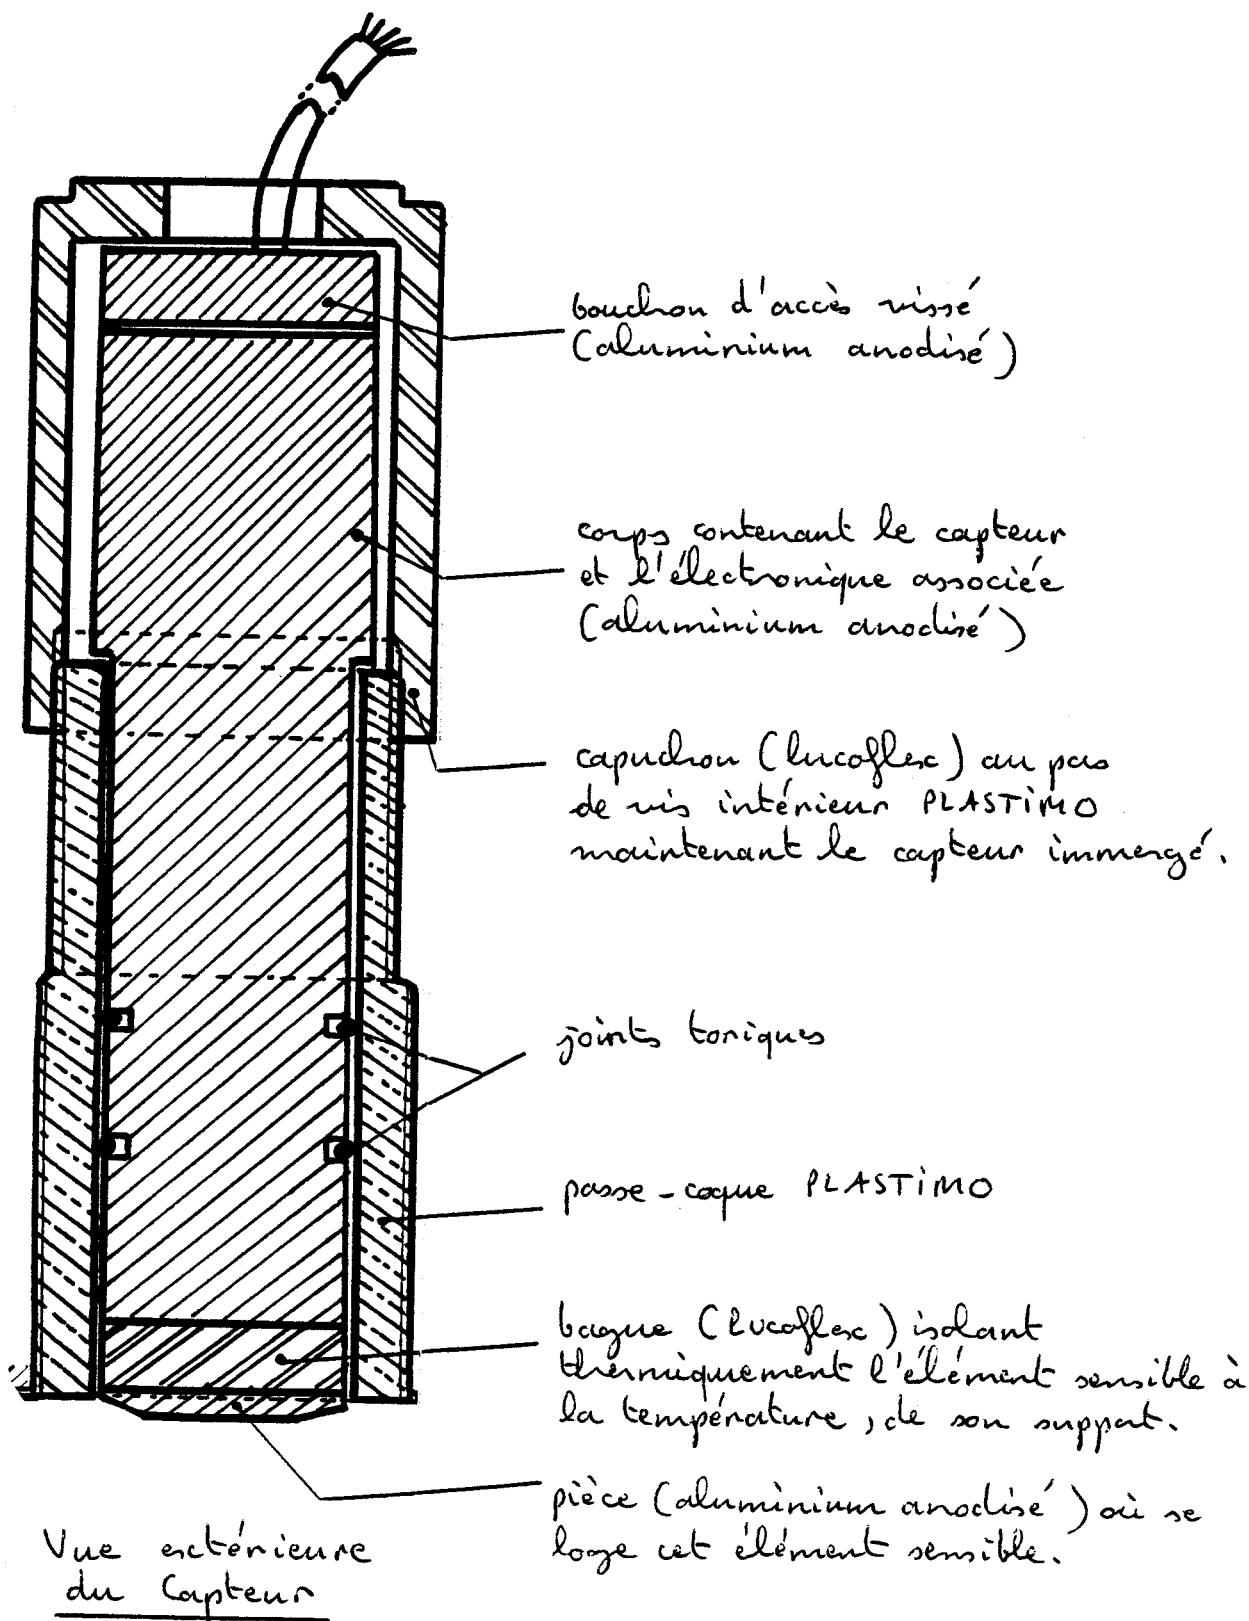 bouchon d'accès vissé
(aluminium anodisé)
corps contenant le capteur
et l'électronique associée
(aluminium anodisé)
capuchon (lucoflex) au pas
de vis intérieur PLASTiMO
maintenant le capteur immergé.
joints toriques
passe-coque PLASTiMO
bague (lucoflex) isolant
thermiquement l'élément sensible à
la température, de son support.
pièce (aluminium anodisé) où se
loge cet élément sensible.
Vue extérieure
du Capteur